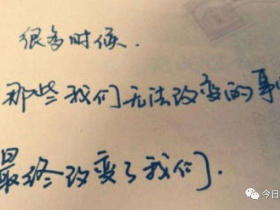 很多时候.
那些我们无法改变的事
最终改变了我们.
今日